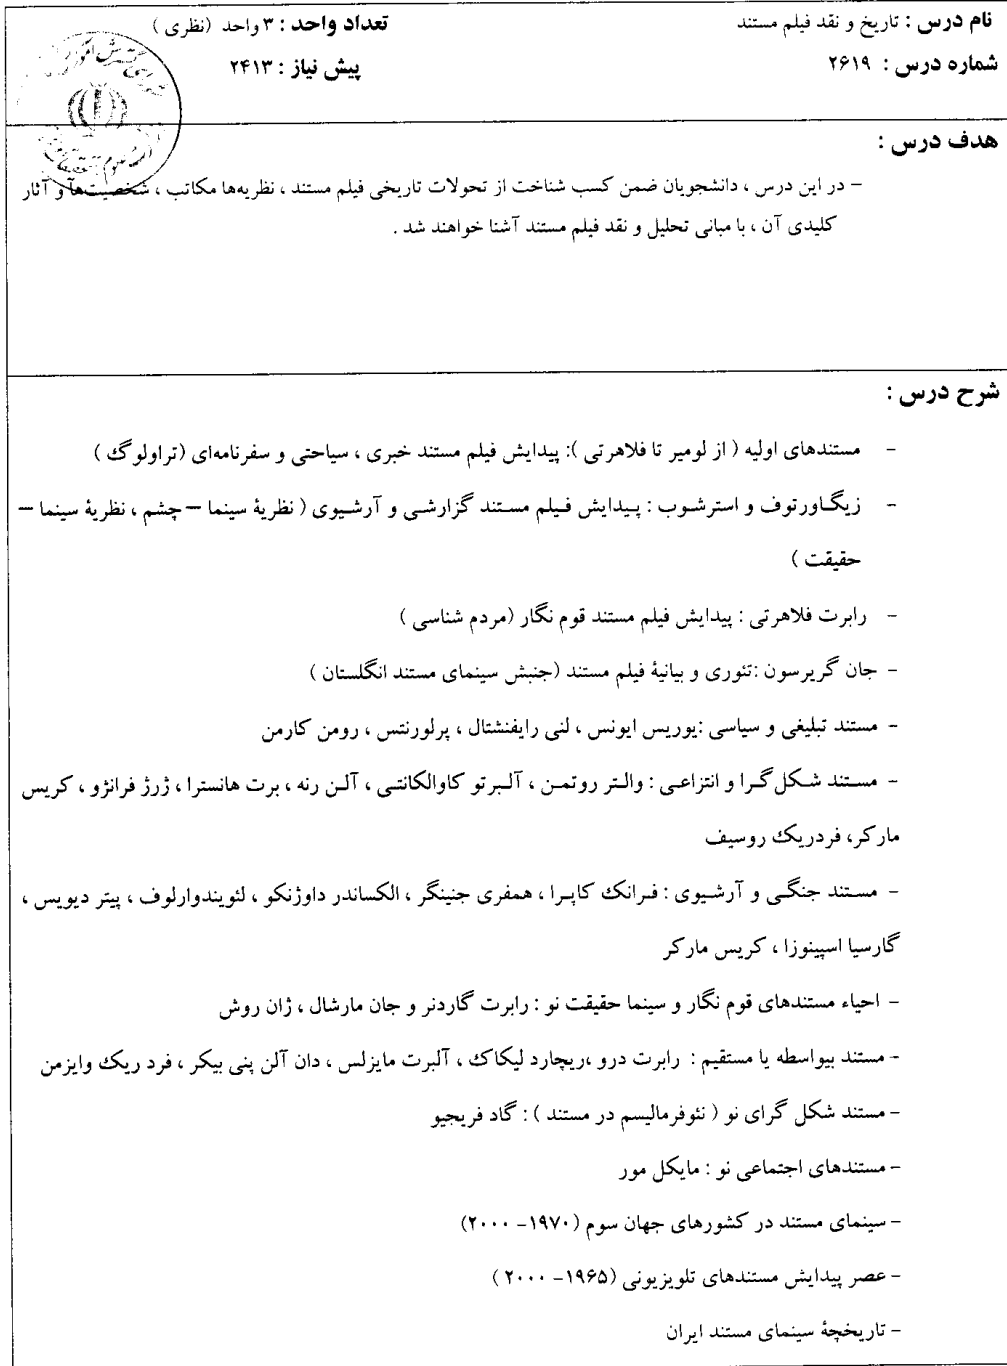 نام درس : تاریخ و نقد فیلم مستند
تعداد واحد : ۳ واحد (نظری )
شماره درس : ۲۶۱۹
پیش نیاز : ۲۴۱۳
هدف درس :
– در این درس ، دانشجویان ضمن کسب شناخت از تحولات تاریخی فیلم مستند ، نظریه‌ها مکاتب ، شخصیت‌ها و آثار
کلیدی آن ، با مبانی تحلیل و نقد فیلم مستند آشنا خواهند شد .
شرح درس :
- مستندهای اولیه ( از لومیر تا فلاهرتی ): پیدایش فیلم مستند خبری ، سیاحتی و سفرنامه‌ای (تراولوگ )
- زیگاورتوف و استرشوب : پیدایش فیلم مستند گزارشی و آرشیوی ( نظریهٔ سینما – چشم ، نظریهٔ سینما –
حقیقت )
- رابرت فلاهرتی : پیدایش فیلم مستند قوم نگار (مردم شناسی )
- جان گریرسون :تئوری و بیانیهٔ فیلم مستند (جنبش سینمای مستند انگلستان )
- مستند تبلیغی و سیاسی :یوریس ایونس ، لنی رایفنشتال ، پرلورنتس ، رومن کارمن
- مستند شکل گرا و انتزاعی : والتر روتمن ، آلبرتو کاوالکانتی ، آلن رنه ، برت هانسترا ، ژرژ فرانژو ، کریس
مارکر، فردریک روسیف
- مستند جنگی و آرشیوی : فرانک کاپرا ، همفری جنینگر ، الکساندر داوژنکو ، لئویندوارلوف ، پیتر دیویس ،
گارسیا اسپینوزا ، کریس مارکر
- احیاء مستندهای قوم نگار و سینما حقیقت نو : رابرت گاردنر و جان مارشال ، ژان روش
- مستند بیواسطه یا مستقیم : رابرت درو ،ریچارد لیکاک ، آلبرت مایزلس ، دان آلن پنی بیکر ، فرد ریک وایزمن
- مستند شکل گرای نو ( نئوفرمالیسم در مستند ) : گاد فریجیو
- مستندهای اجتماعی نو : مایکل مور
- سینمای مستند در کشورهای جهان سوم (۱۹۷۰- ۲۰۰۰)
- عصر پیدایش مستندهای تلویزیونی (۱۹۶۵- ۲۰۰۰ )
- تاریخچهٔ سینمای مستند ایران